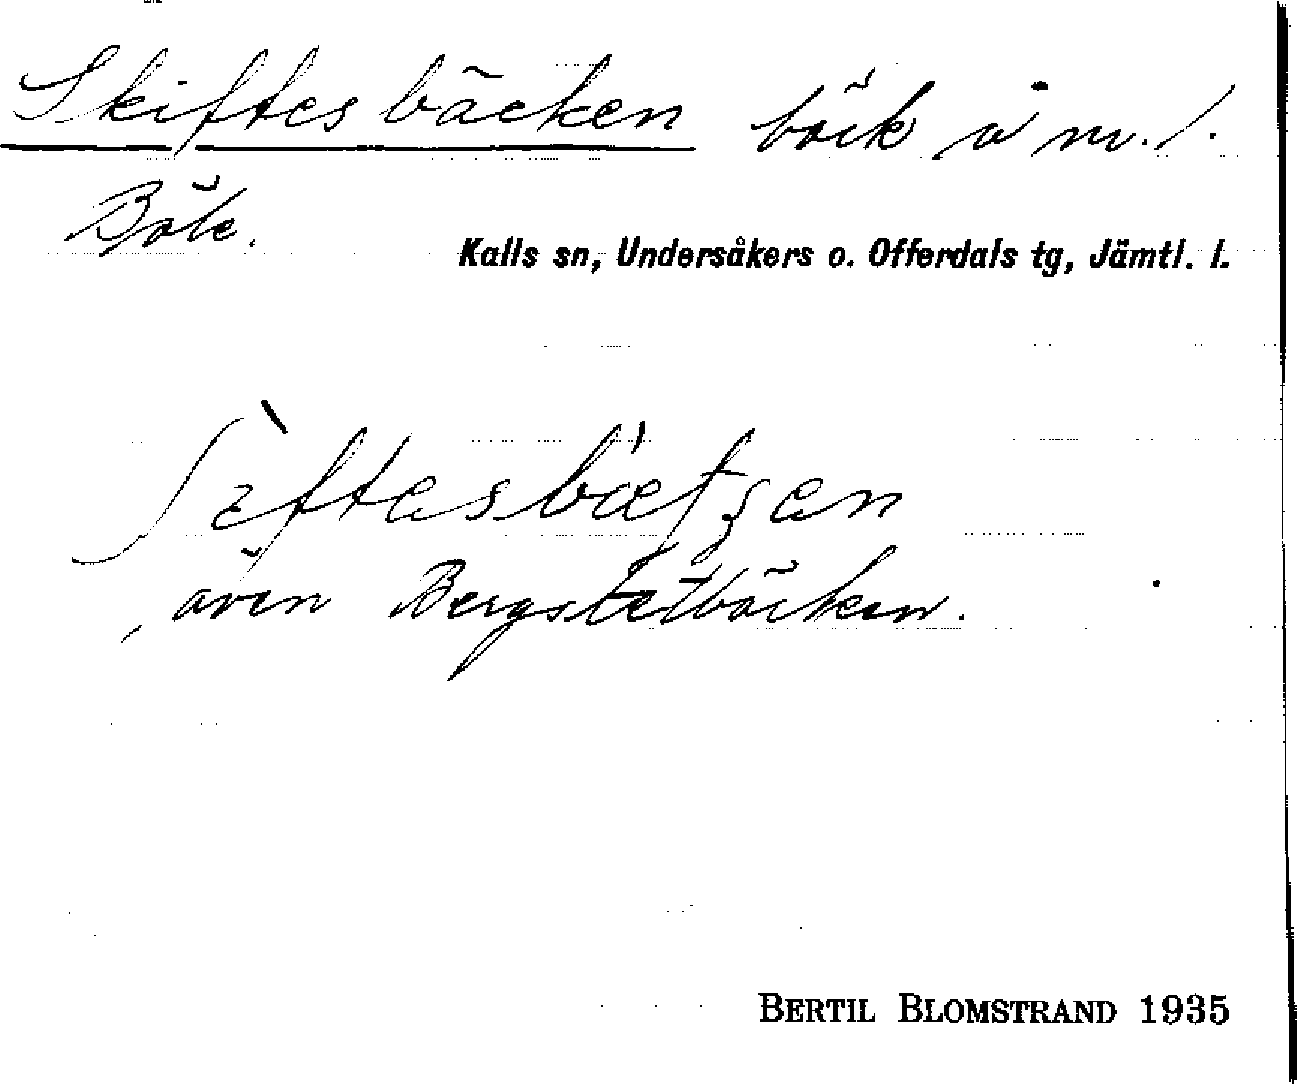 Skiftesbäcken bäck å nv. /.
Böle.
Kalls sn, Undersåkers o. Offerdals tg, Jämtl. l.
även Bergstetbäcken.
BERTIL BLOMSTRAND 1935